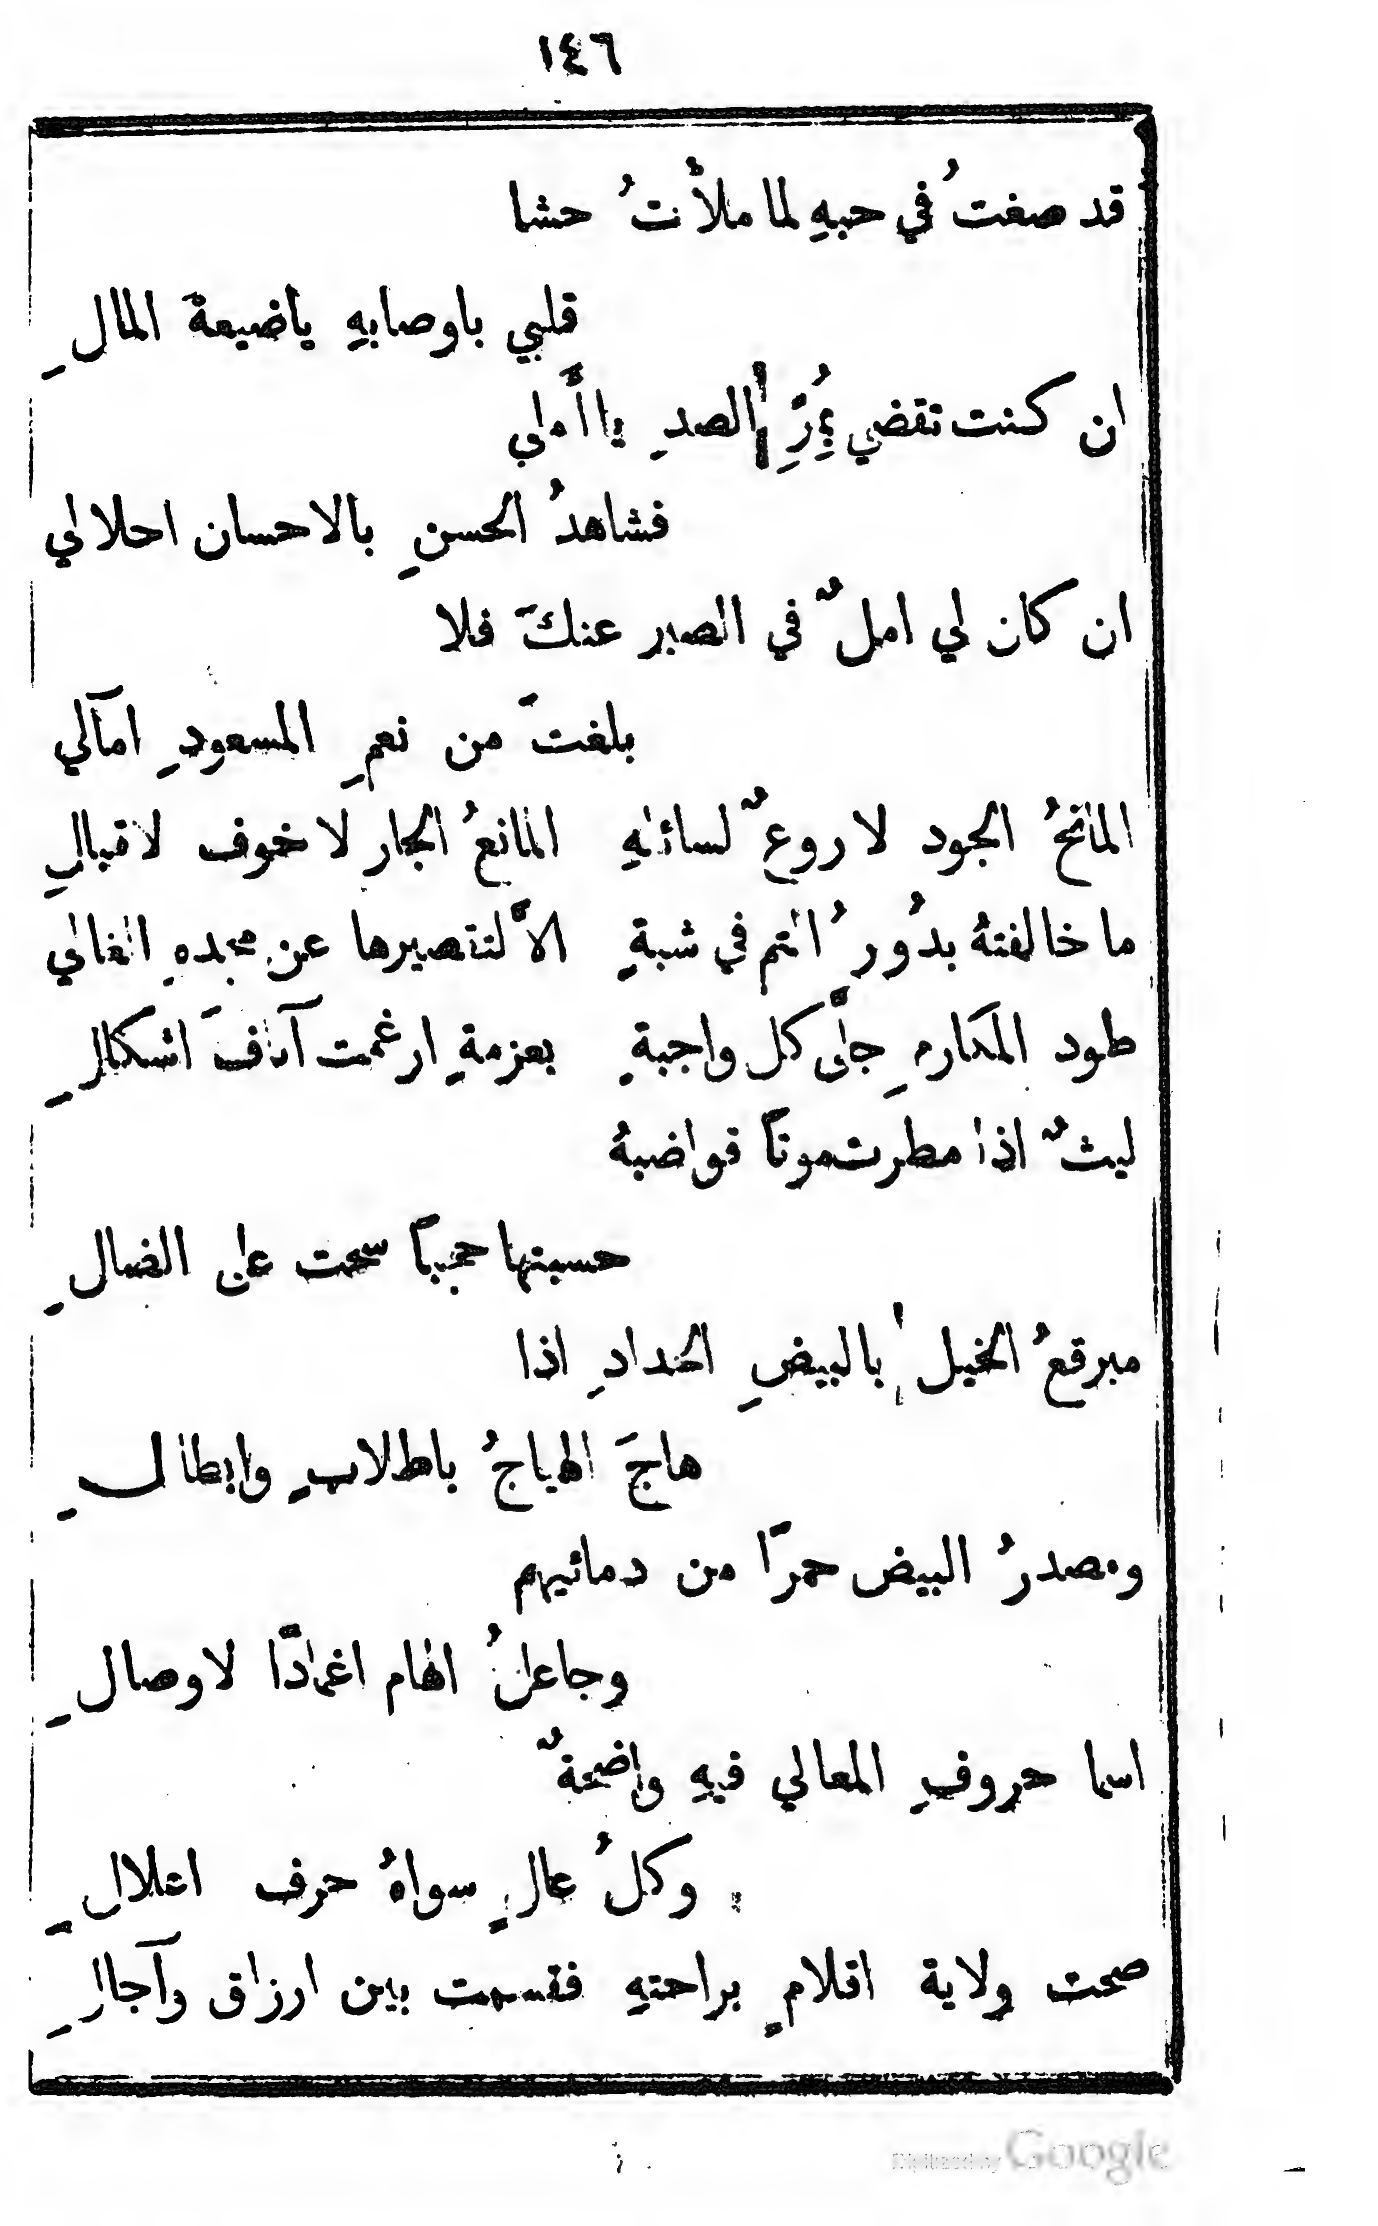 ١٤٦
قد صغتُ في حبهِ لما ملأْتُ حشا
قلبي باوصابهِ ياضيعةَ المالِ
ان كنت تقضي بمُرِّ الصدِ يا أَملي
فشاهدُ الحسنِ بالاحسان احلالي
ان كان لي املٌ في الصبر عنكَ فلا
بلغتَ من نعمِ المسعودِ امآلي
المانحُ الجود لا روعٌ لسائلهِ المانعُ الجار لا خوف لاقبالِ
ما خالفتهُ بدُورُ التم في شبةٍ الاَّ لتقصيرها عن مجدهِ الغالي
طود المكارمِ جلَّى كل واجبةٍ بعزمةٍ ارغمت آنافَ اشكالِ
ليثٌ اذا مطرت موتًا قواضبهُ
حسبتها حجبًا سحت على الضالِ
مبرقعُ الخيل بالبيضِ الحدادِ اذا
هاجَ الهياجُ باطلابٍ وابطالِ
ومصدرُ البيض حمرًا من دمائيهم
وجاعلُ الهام اغمادًا لاوصالِ
اسما حروفِ المعالي فيهِ واضحةٌ
وكلُ عالٍ سواهُ حرف اعلالِ
صحت ولاية اقلامٍ براحتهِ فقسمت بين ارزاق وآجالِ
Digitized by Google